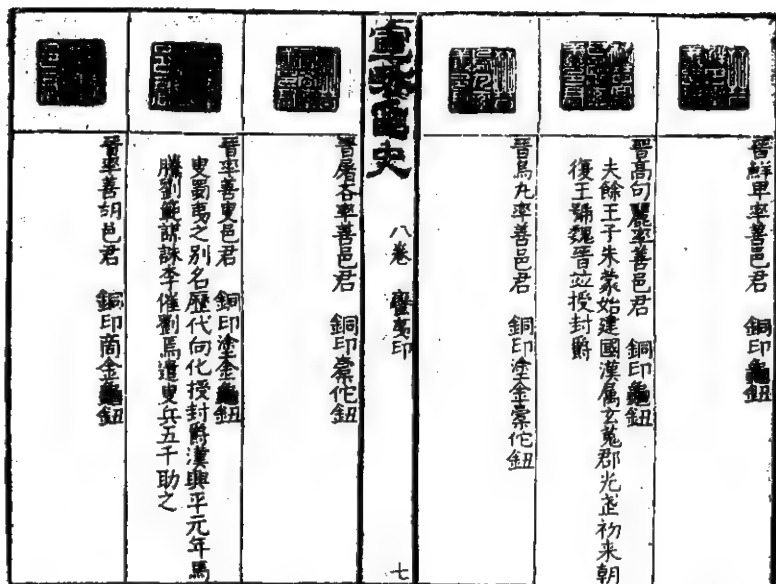 晉鮮卑率善邑君 銅印龜鈕
晉髙句麗率善邑君 銅印龜鈕
夫餘王子朱蒙始建國漢屬玄菟郡光武初来朝
復王號魏晉竝授封爵
晉烏丸率善邑君 銅印塗金橐佗鈕
宣史 八卷 蠻夷印 七
晉屠各率善邑君 銅印橐佗鈕
晉率善叟邑君 銅印塗金龜鈕
叟蜀夷之別名歷代向化授封爵漢興平元年馬
騰劉範謀誅李催劉焉遣叟兵五千助之
晉率善胡邑君 銅印商金龜鈕